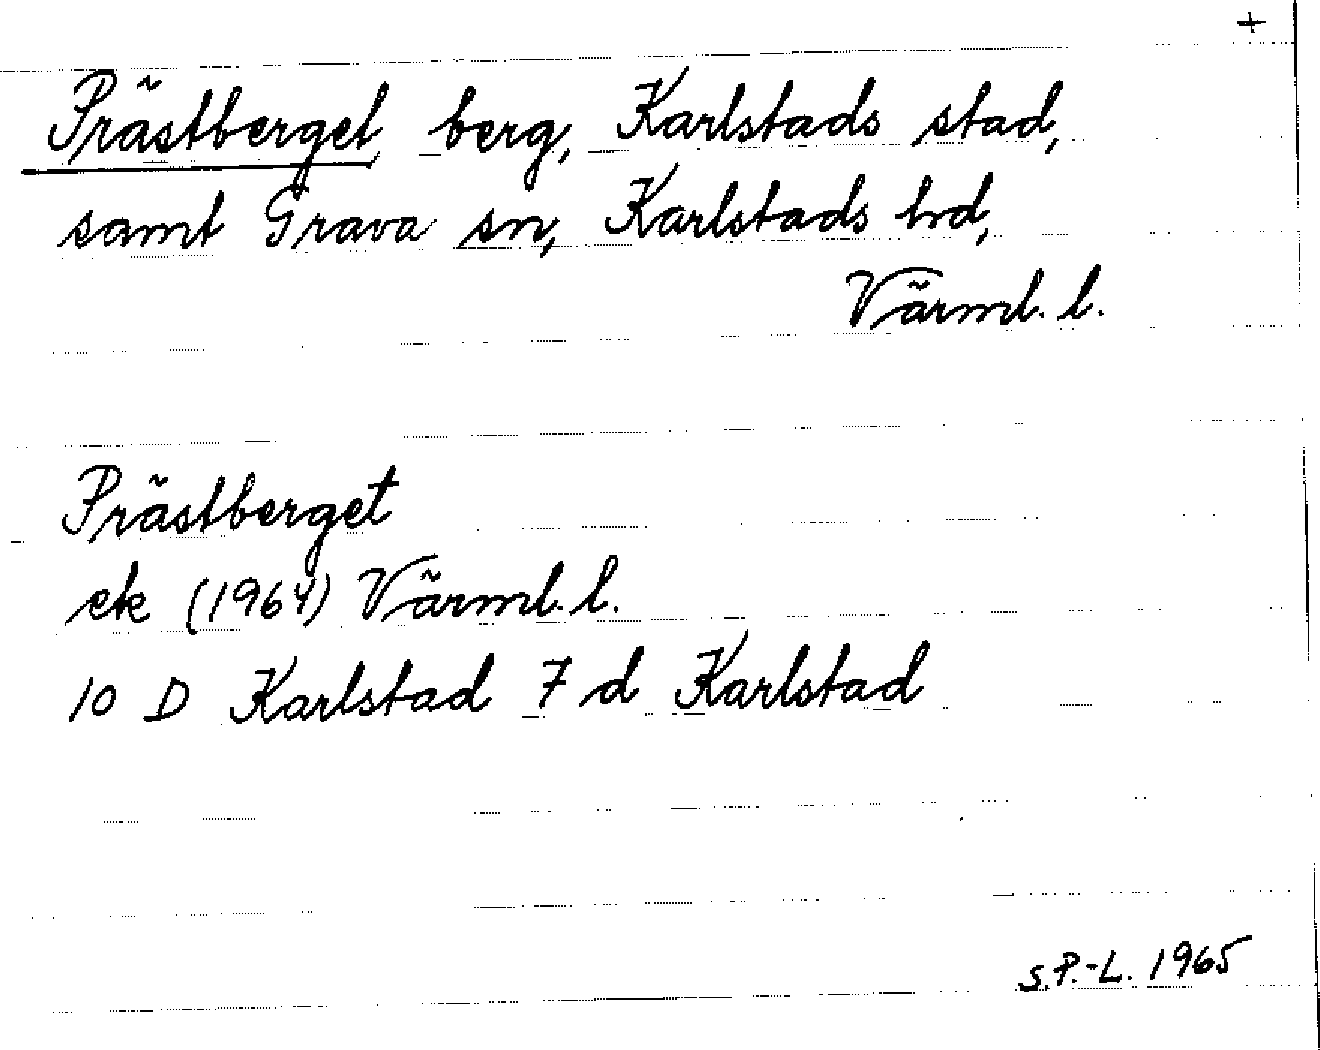 +
Prästberget, berg, Karlstads stad,
samt Grava sn, Karlstads hd,
Värml. l.
Prästberget
ek (1964) Värml. l.
10 D Karlstad 7 d Karlstad
S.P.-L. 1965